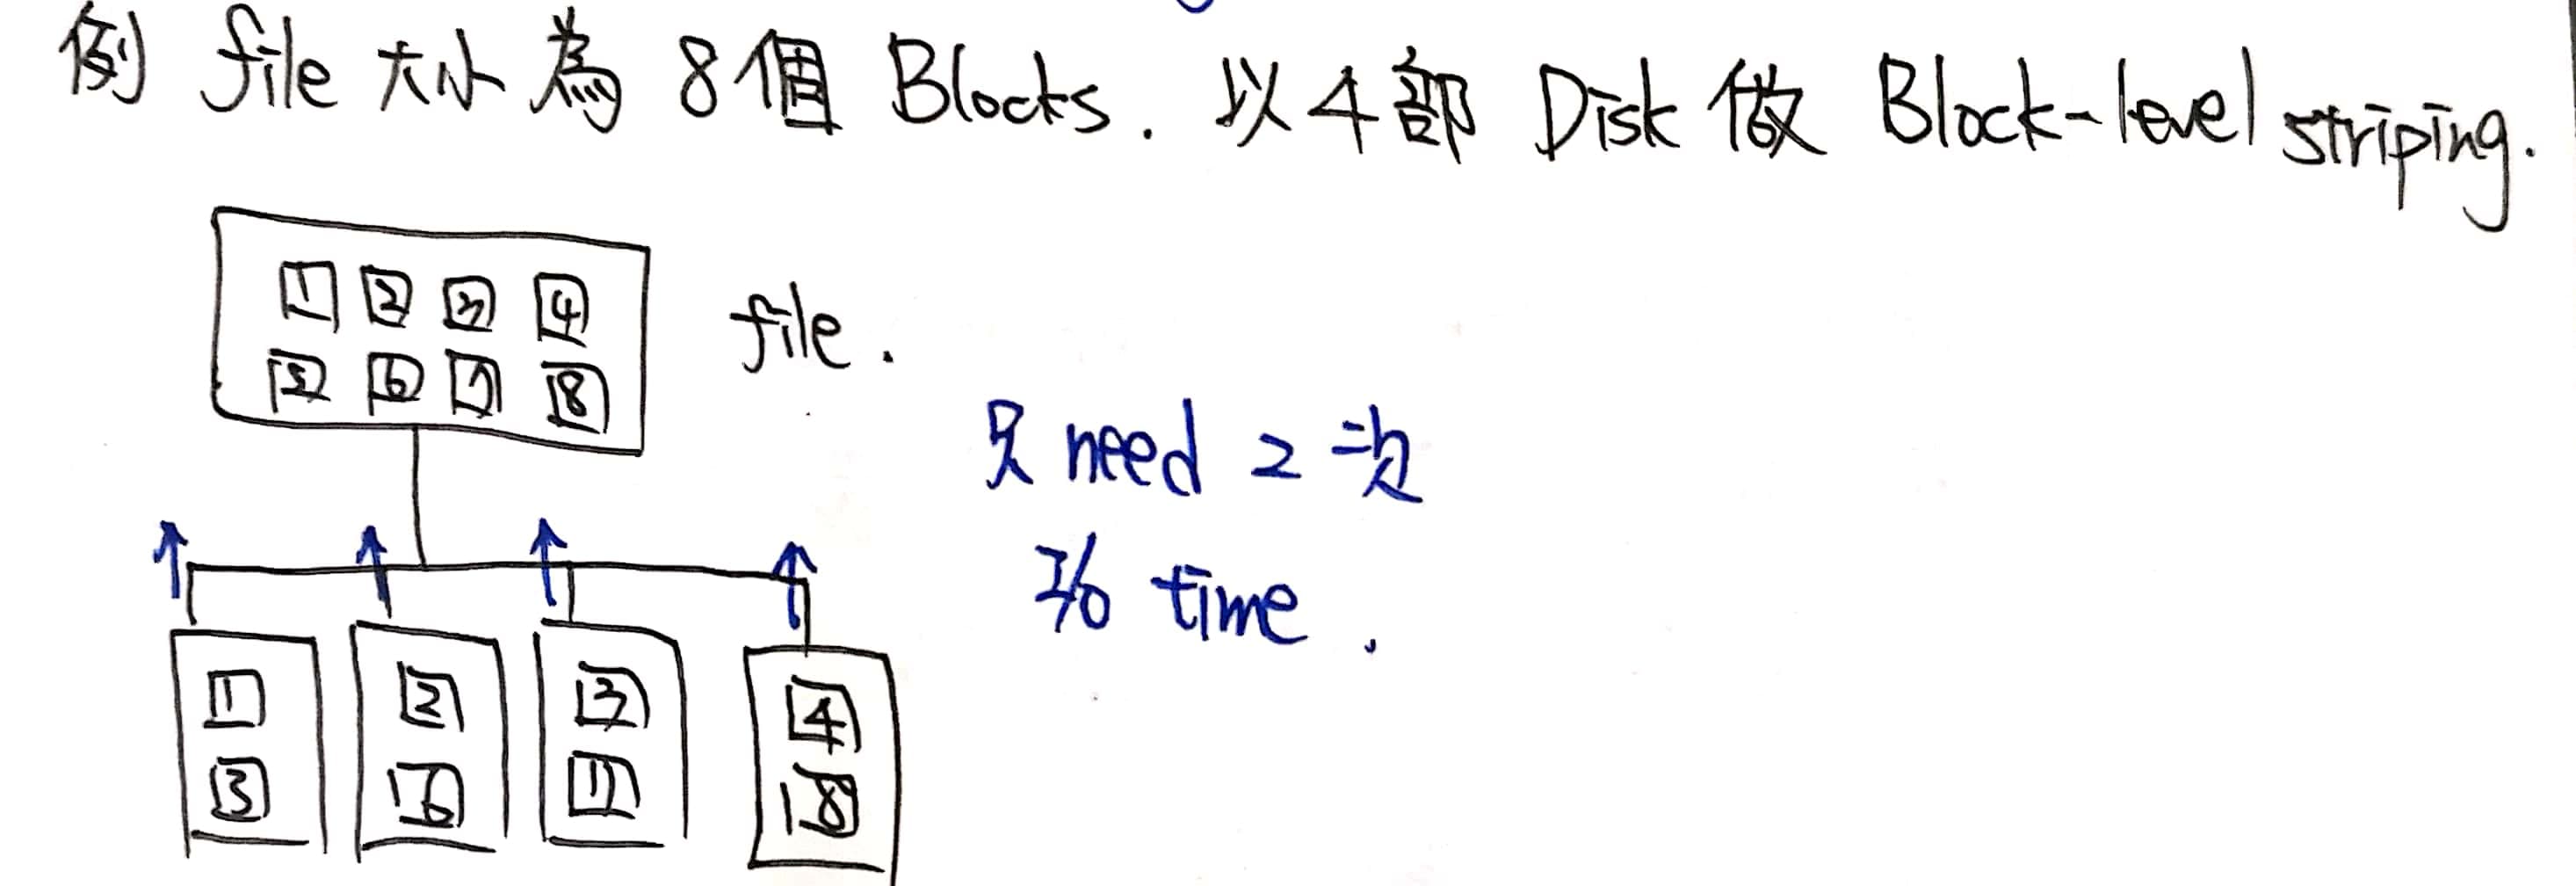 例 file 大小為 8個 Blocks. 以4部 Disk 做 Block-level striping.
1 2 3 4
5 6 7 8
file.
只 need 2 次
I/O time.
1 2 3 4
5 6 7 8